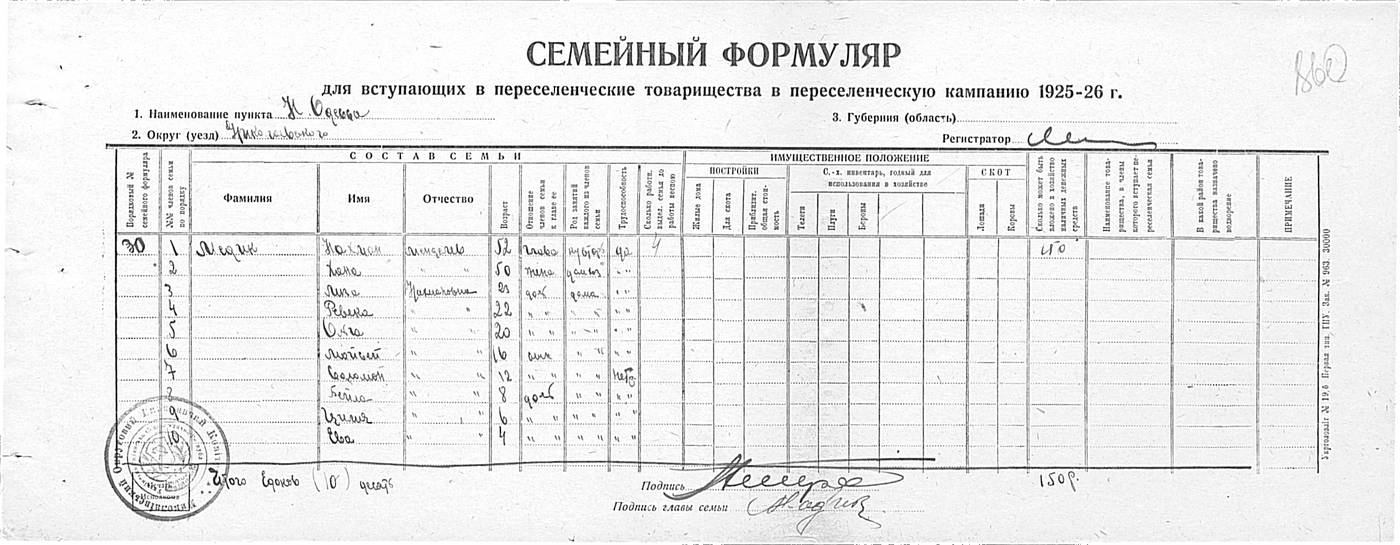 СЕМЕЙНЫЙ ФОРМУЛЯР
для вступающих в переселенческие товарищества в переселенческую кампанию 1925-26 г.
1. Наименование пункта Н Одесса
3. Губерния (область)
2. Округ (уезд)
Регистратор
СОСТАВ СЕМЬИ
ИМУЩЕСТВЕННОЕ ПОЛОЖЕНИЕ
Порядковый № семейного формуляра
№№ членов семьи по порядку
Фамилия
Имя
Отчество
Возраст
Отношение членов семьи к главе ее
Род занятий каждого из членов семьи
Трудоспособность
Сколько работн. выдел. семья до работы весною
ПОСТРОЙКИ
Жилые дома
Для скота
Приблизит. общая стоимость
С.-х. инвентарь, годный для использования в хозяйстве
Телеги
Плуги
Бороны
СКОТ
Лошади
Коровы
Сколько может быть вложено в хозяйство наличных денежных средств
Наименование товарищества, в члены которого вступает переселенческая семья
В какой район товарищества назначено водворение
ПРИМЕЧАНИЕ
30 1 Медник Нахман Менделев 52 глава да 4 150
2 Хана " " 50 жена " "
3 Лиза Нахмановна 23 доч дома " "
4 Ревека " " 22 " " " " " "
5 Ольга " " 20 " " " " " "
6 Мойсей " " 16 сын " " " "
7 Соломон " " 12 " " " " нет
8 Бейла " " 8 доч " " " "
9 Циля " " 6 " " " " " "
10 Ева " " 4 " " " " " "
Итого Едоков (10) десять
Подпись
150р.
Подпись главы семьи
Укрповраліг № 19, б Перша тип. ГПУ. Зак. № 963. 20000